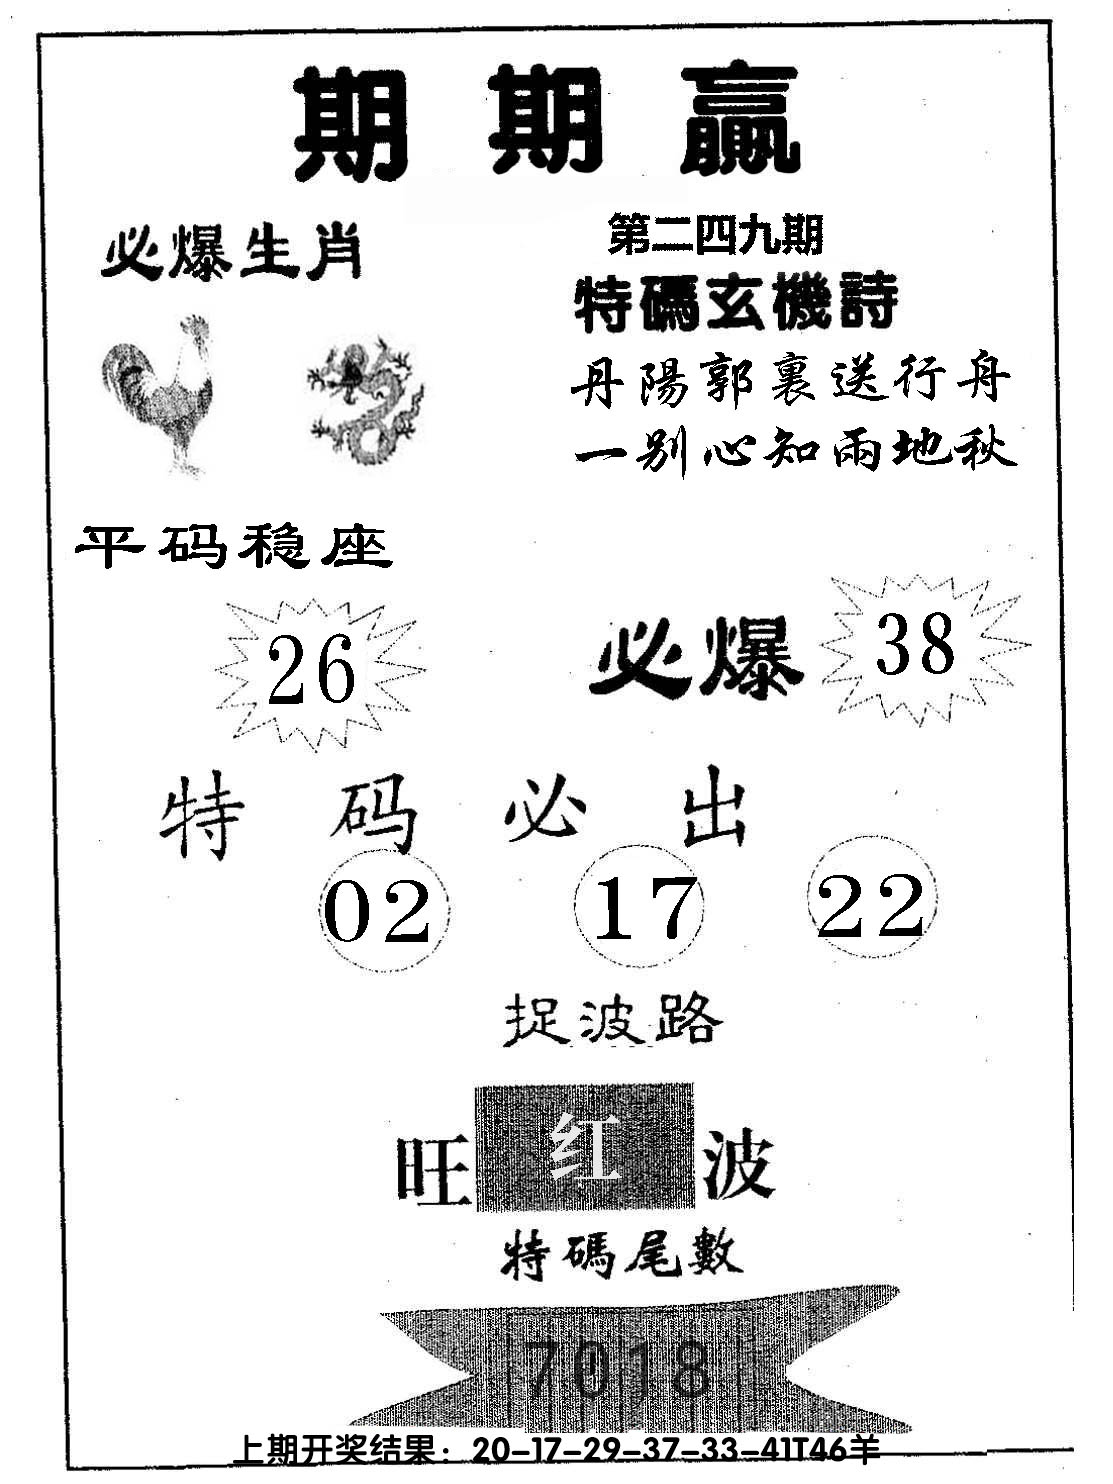 期期赢
必爆生肖
第二四九期
特碼玄機詩
丹陽郭裏送行舟
一别心知兩地秋
平码稳座
26
必爆
38
特码必出
02 17 22
捉波路
旺红波
特碼尾數
7018
上期开奖结果：20-17-29-37-33-41T46羊